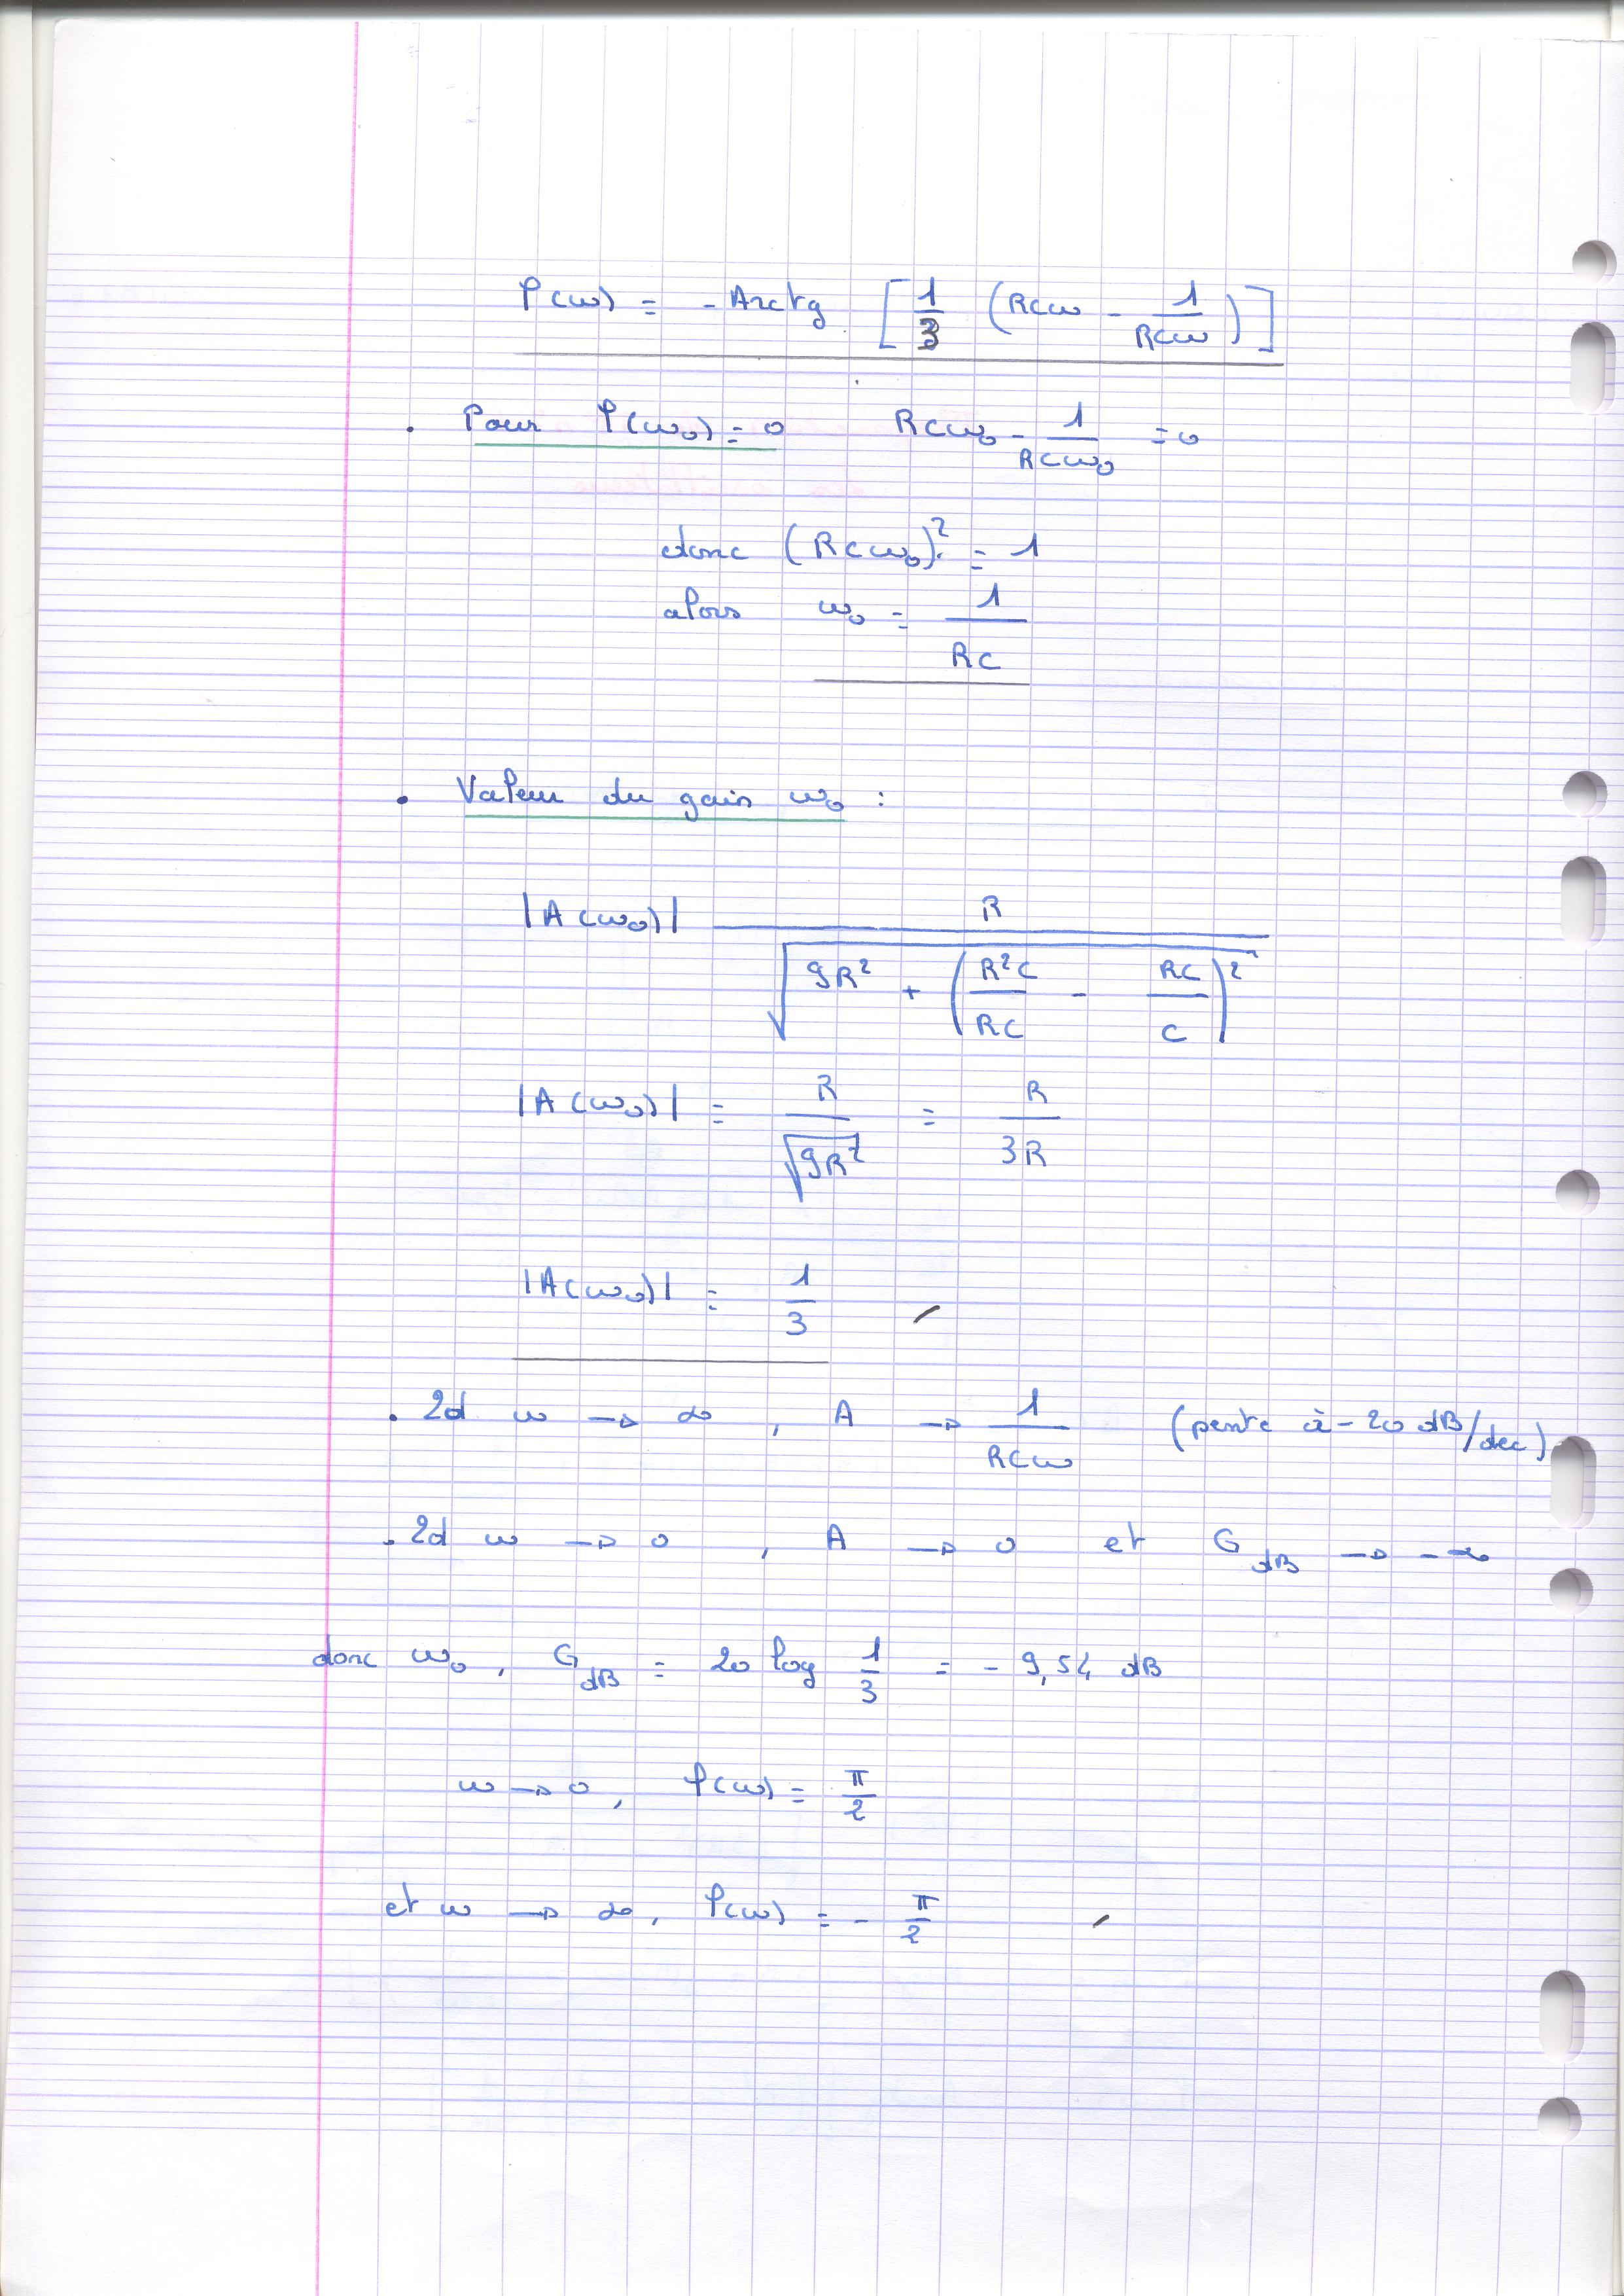 φ(ω) = - Arctg [ 1/3 ( RCω - 1/RCω ) ]
. Pour φ(ω₀) = 0 RCω₀ - 1/RCω₀ = 0
donc (RCω₀)² = 1
alors ω₀ = 1/RC
. Valeur du gain ω₀ :
|A(ω₀)| R / √( 9R² + ( R²C/RC - RC/C )² )
|A(ω₀)| = R/√(9R²) = R/3R
|A(ω₀)| = 1/3
. 2d ω → ∞ , A → 1/RCω (pente à - 20 dB/dec)
. 2d ω → 0 , A → 0 et G dB → - ∞
donc ω₀ , G dB = 20 log 1/3 = - 9,54 dB
ω → 0 , φ(ω) = π/2
et ω → ∞ , φ(ω) = - π/2